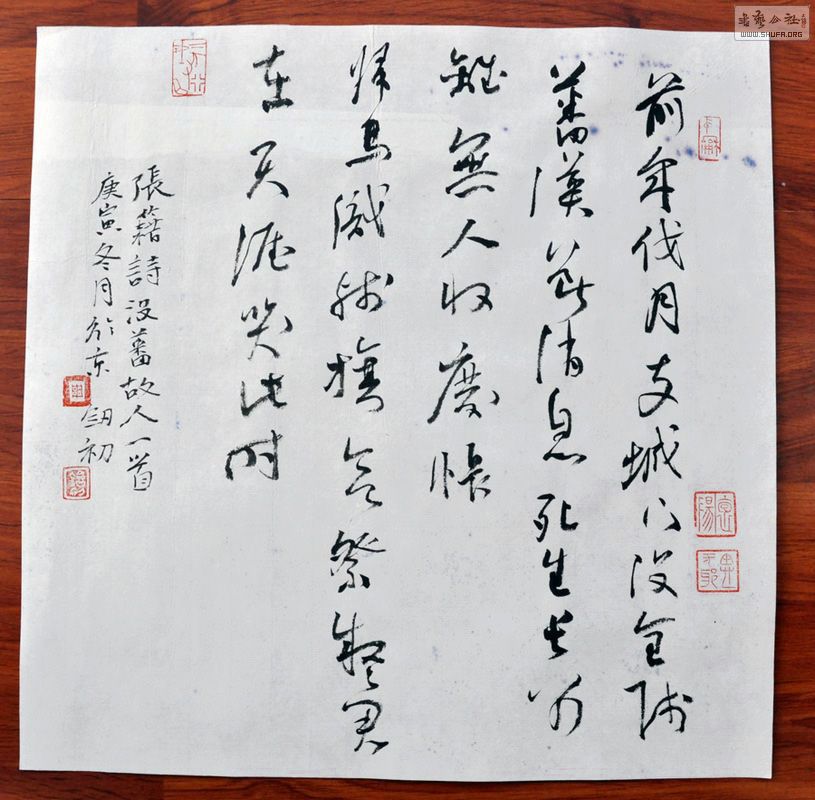 前年伐月支城下没全師
蕃漢斷消息死生長別
離無人收廢帳
歸馬識殘旗欲祭疑君
在天涯哭此時
張籍詩没蕃故人一首
庚寅冬月於 初
書藝公社
WWW.SHUFA.ORG